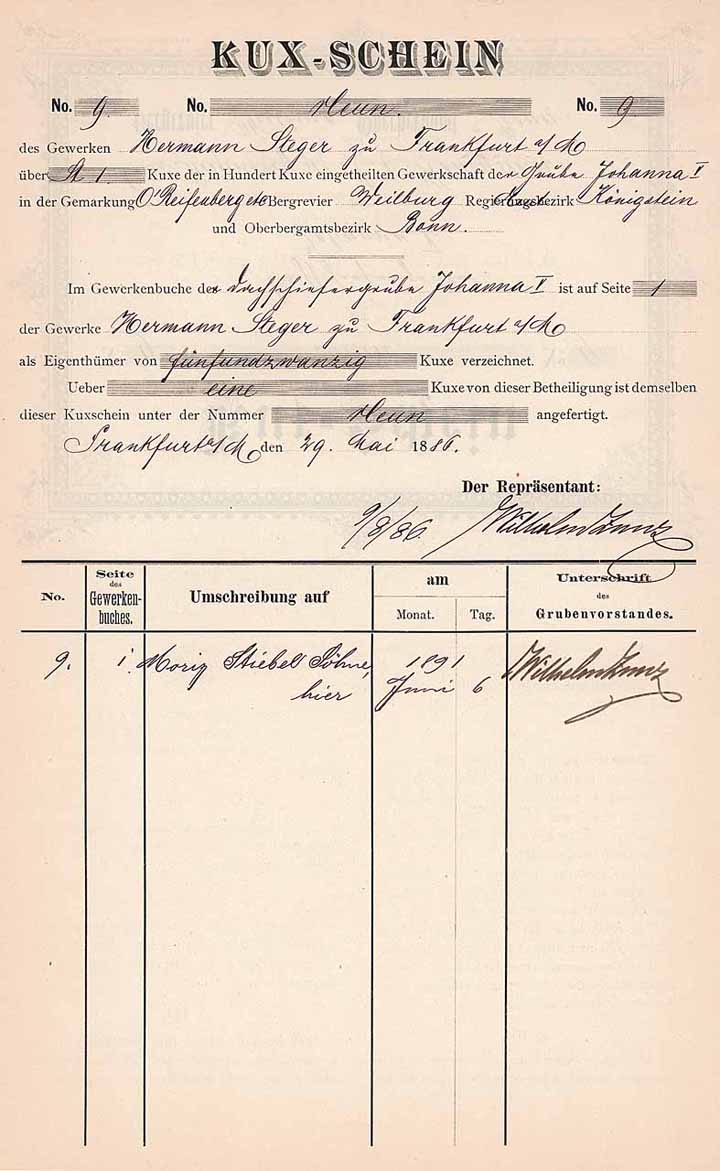 KUX-SCHEIN
No. 9. No. Neun. No. 9
des Gewerken Hermann Steger zu Frankfurt a/M
über St 1. Kuxe der in Hundert Kuxe eingetheilten Gewerkschaft der Grube Johanna V
in der Gemarkung O'Reifenberg etc Bergrevier Weilburg Regierungsbezirk Königstein
und Oberbergamtsbezirk Bonn.
Im Gewerkenbuche der Dachschiefergrube Johanna V ist auf Seite 1
der Gewerke Hermann Steger zu Frankfurt a/M
als Eigenthümer von fünfundzwanzig Kuxe verzeichnet.
Ueber eine Kuxe von dieser Betheiligung ist demselben
dieser Kuxschein unter der Nummer Neun angefertigt.
Frankfurt a/M den 29. Mai 1886.
Der Repräsentant:
9/8/86. Wilhelm Kunz
No. Seite des Gewerken-buches. Umschreibung auf am Monat. Tag. Unterschrift des Grubenvorstandes.
9. 1. Moriz Stiebel Söhne, 1891 Wilhelm Kunz
hier Juni 6